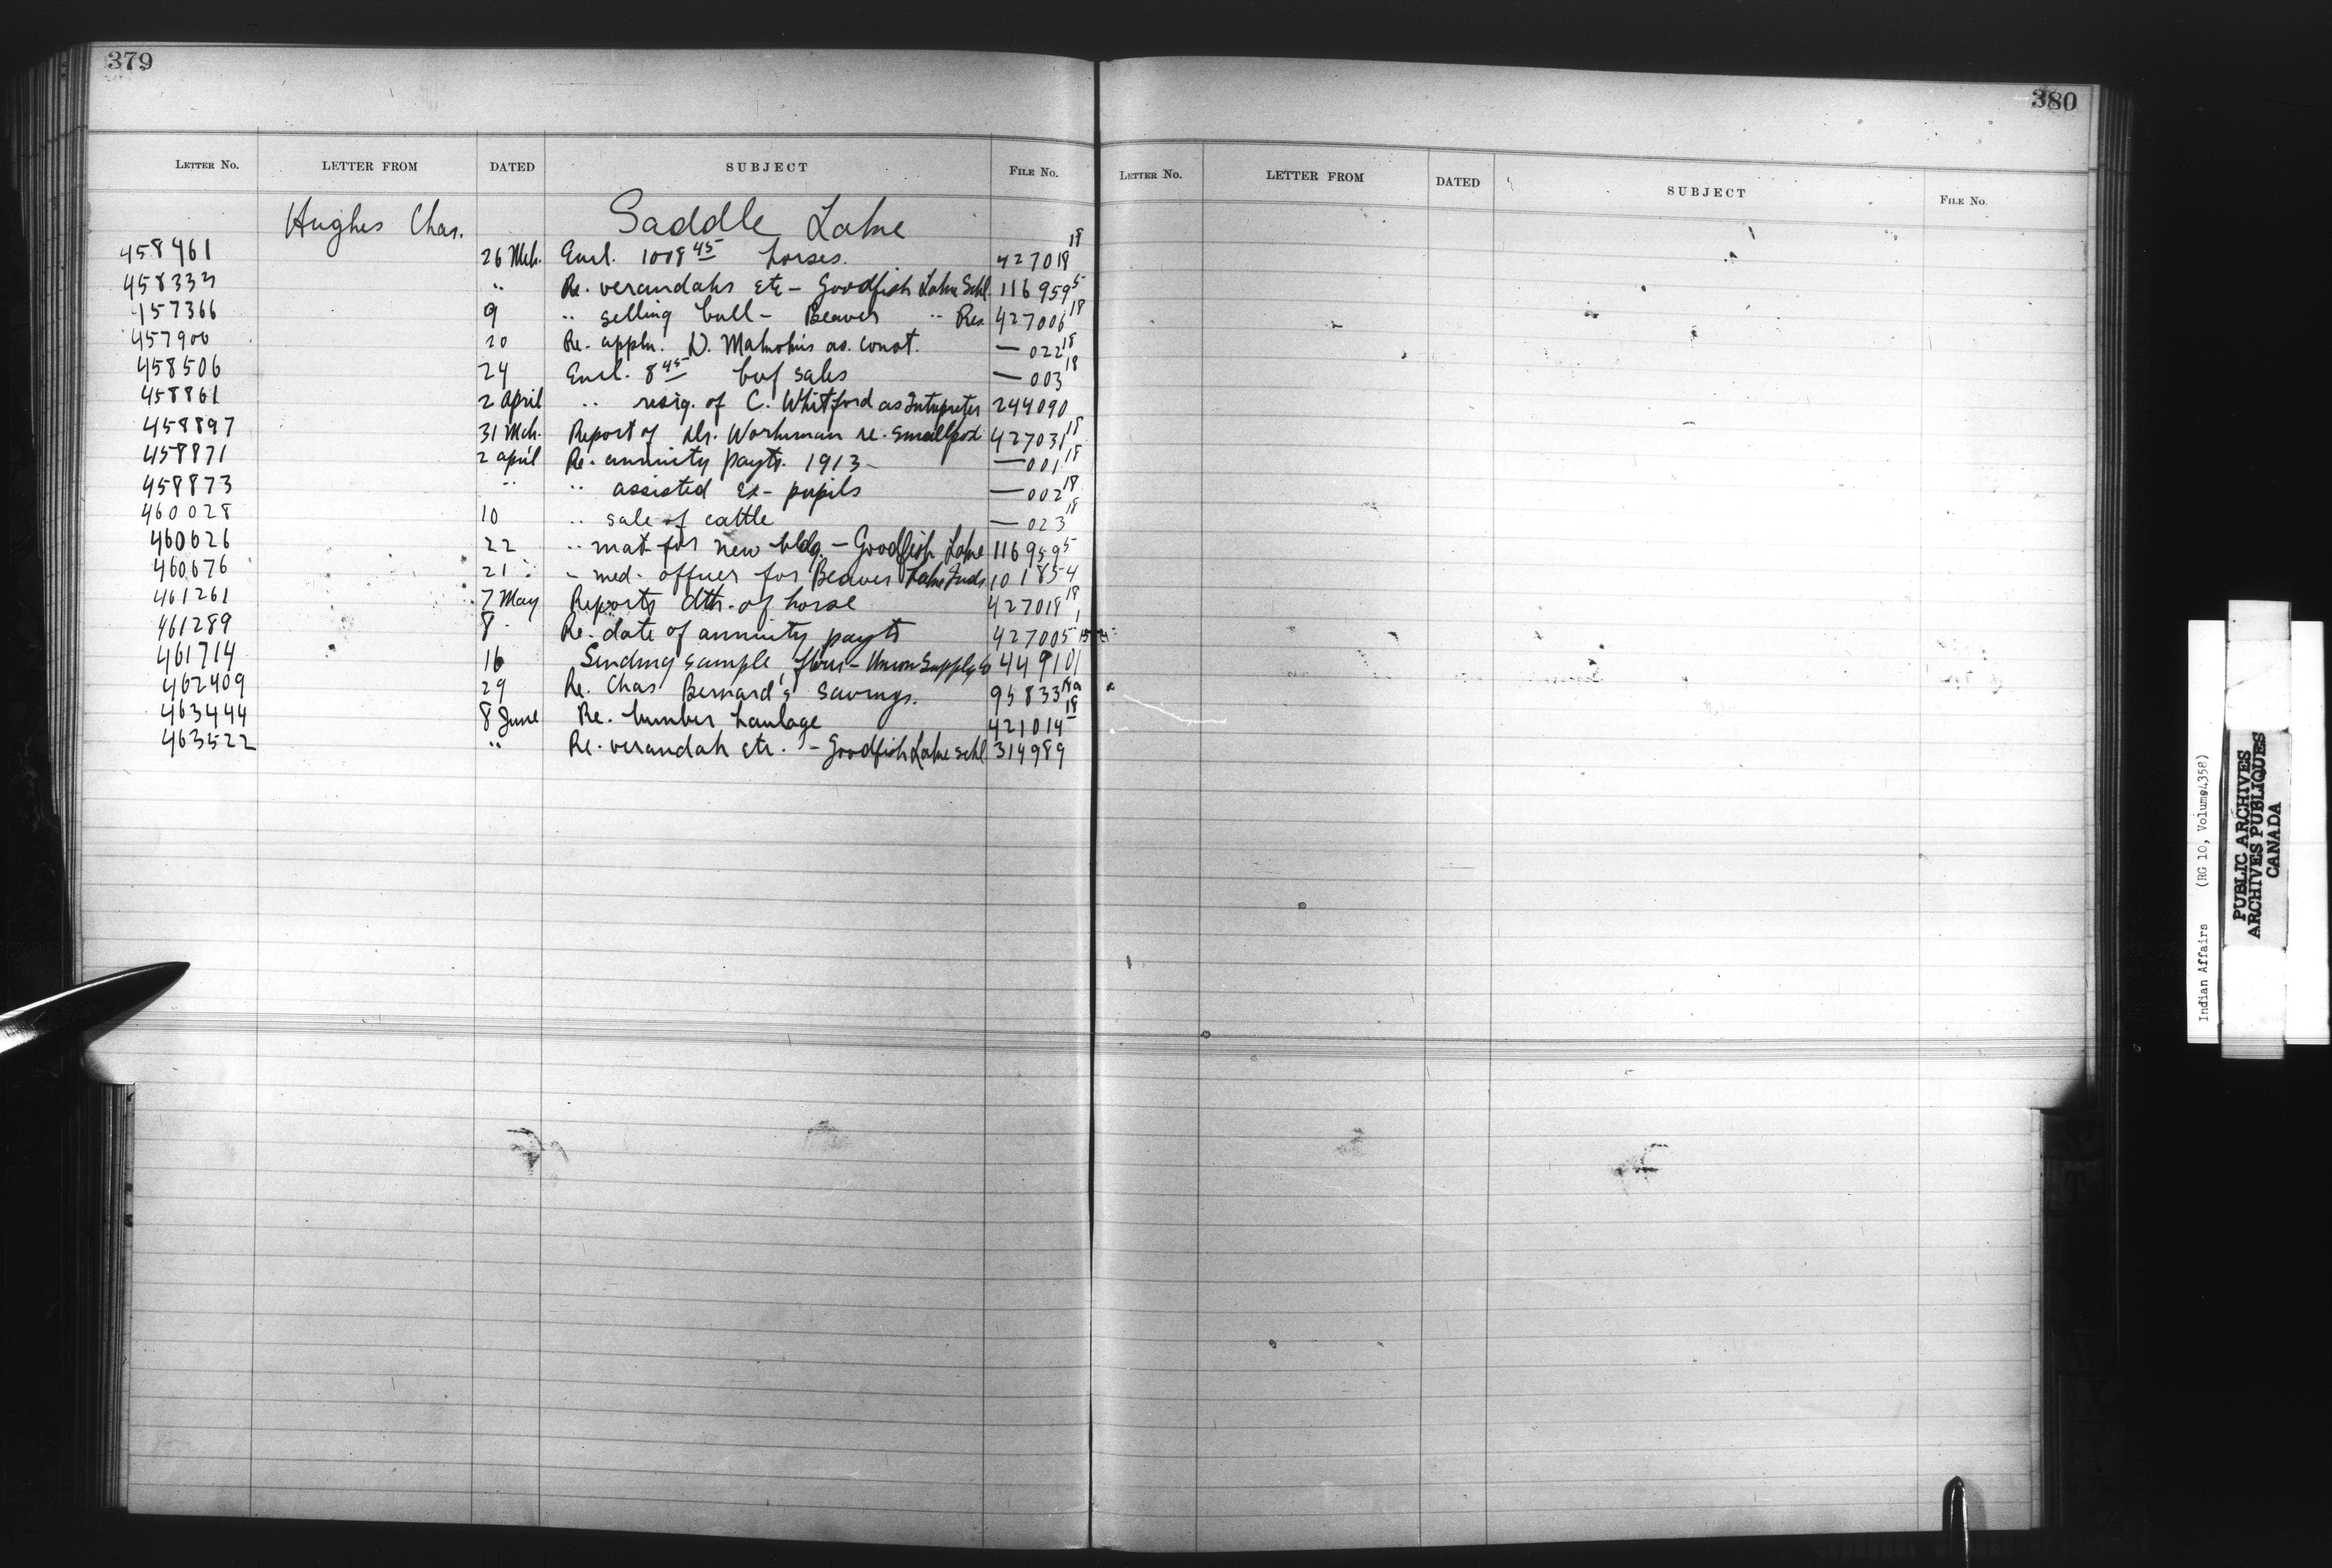 379
LETTER NO. LETTER FROM DATED SUBJECT FILE NO.
Hughes Chas. Saddle Lake
458461 26 Mch. Encl. 1008 45 horses. 427018 18
458333 " Re. verandahs etc - Goodfish Lake Schl. 116959 5
457366 9 " selling bull - Beaver " Res. 427006 18
457900 20 Re. appln. D. as. const. — 022 18
458506 24 Encl. 8 45 beef sales — 003 18
458861 2 April " resig. of C. Whitford as Interpreter 244090
458897 31 Mch. Report of Dr. Workman re. smallpox 427031 18
458871 2 april Re. annuity payts. 1913 — 001 18
458873 " " assisted ex-pupils — 002 18
460028 10 " sale of cattle — 023 18
460626 22 " mat for new bldg. - Goodfish Lake 116959 5
460676 21 " med. officer for Beaver Lake Inds 101854
461261 7 May Reports dth. of horse 427018 18
461289 8 Re. date of annuity payts 427005 1
461714 16 Sending sample flour - Union Supply Co 449101
462409 29 Re. Chas Bernard's savings. 95833 18a
463444 8 June Re. lumber haulage 421014 18
463522 " Re. verandah etc. - Goodfish Lake schl. 314989
380
LETTER NO. LETTER FROM DATED SUBJECT FILE NO.
Indian Affairs (RG 10, Volume 4358)
PUBLIC ARCHIVES
ARCHIVES PUBLIQUES
CANADA